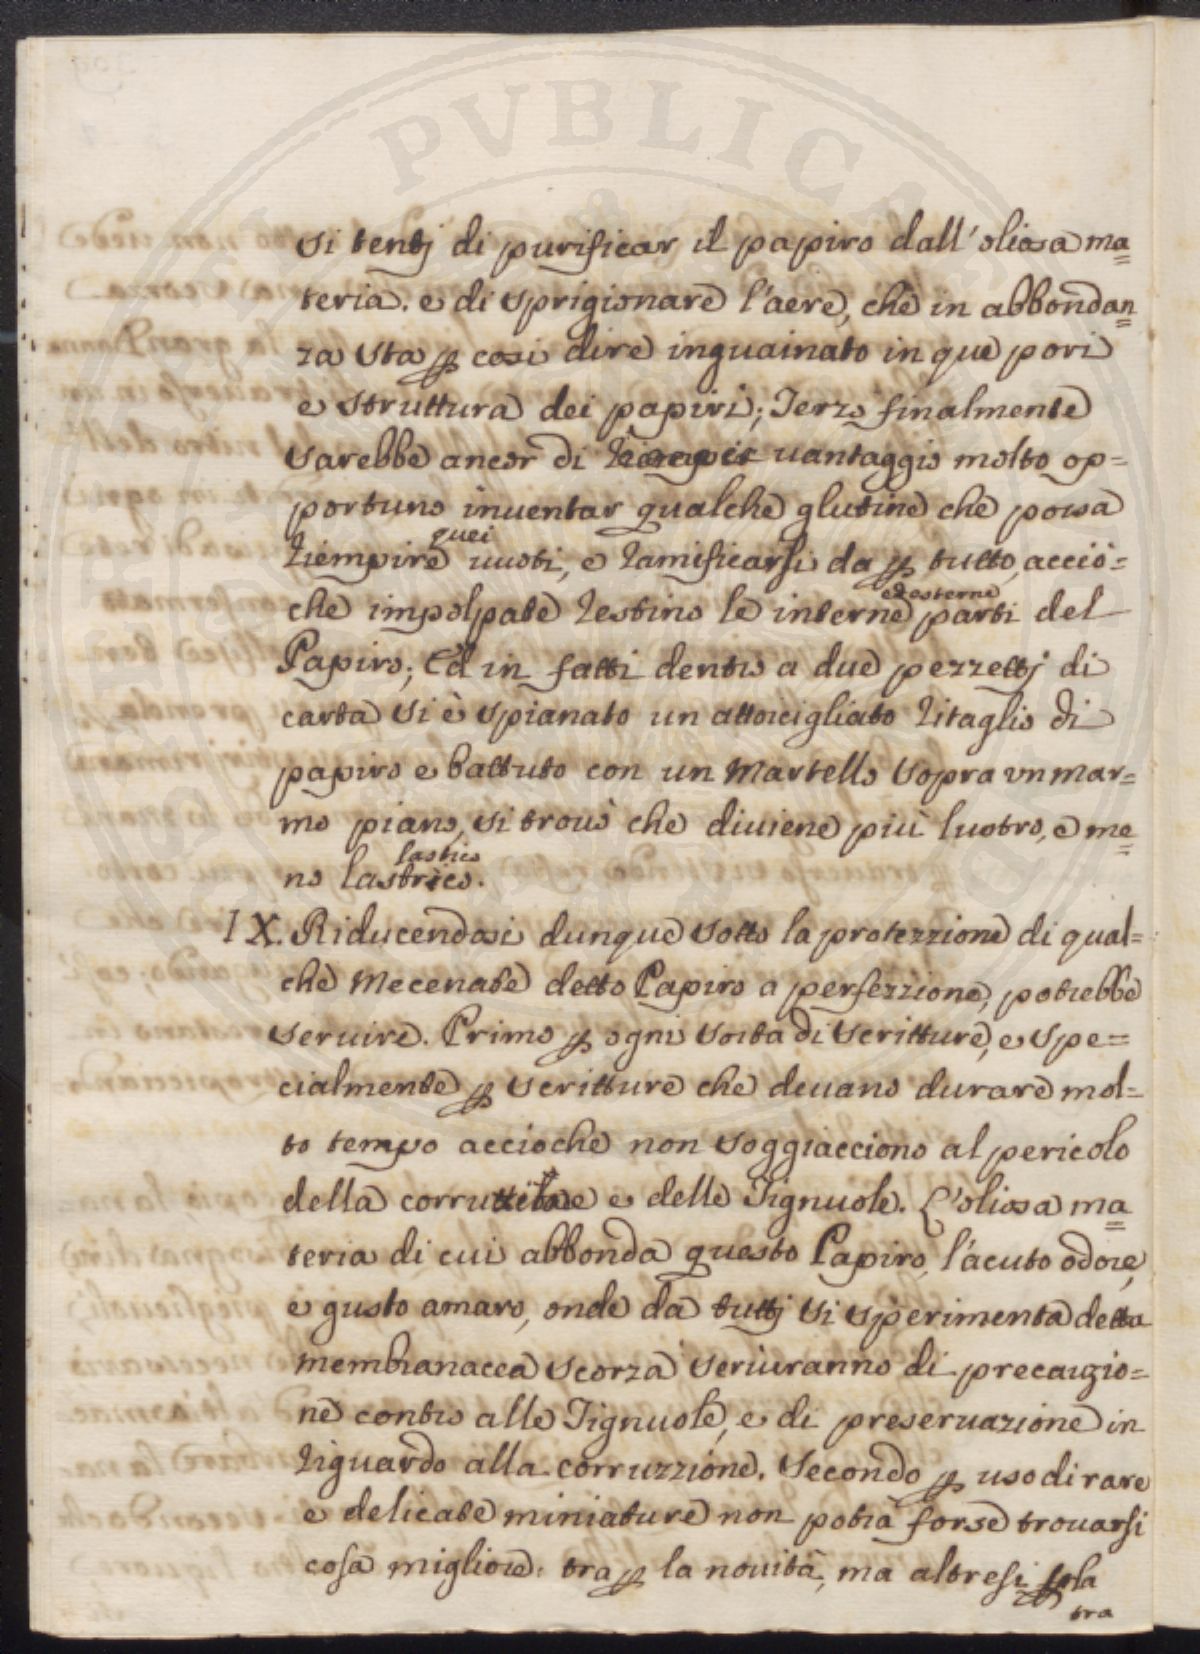 si tentj di purificar il papiro dall'oliosa ma=
teria. e di sprigionare l'aere, che in abbondan=
za sta ꝑ cosi dire inguainato in que pori
e struttura dei papiri; Terzo finalmente
sarebbe ancor di vantaggio molto op=
portuno inventar qualche glutine che possa
quei
riempire uuoti, e ramificarsi da ꝑ tutto, acciò=
ed esterne
che impolpate restino le interne parti del
Papiro; Ed in fatti dentro a due pezzettj di
carta si è spianato un attorcigliato ritaglio di
papiro e battuto con un Martello sopra vn mar=
mo piano, si trouò che diuiene più lustro, e me=
lastico
no lastrico.
IX. Riducendosi dunque sotto la protezzione di qual=
che Mecenate detto Papiro a perfezzione, potrebbe
seruire. Primo ꝑ ogni sorta di scritture, e spe=
cialmente ꝑ scritture che deuano durare mol=
to tempo accioche non soggiacciono al pericolo
della e delle Tignuole. L'oliosa ma=
teria di cui abbonda questo Papiro, l'acuto odore,
e gusto amaro, onde da tuttj si sperimenta detta
membranacea scorza seruiranno di precauzio=
ne contro alle Tignuole, e di preseruazione in
riguardo alla corruzzione. Secondo ꝑ uso di rare
e delicate miniature non potrà forse trouarsi
cosa migliore: tra ꝑ la nouità, ma altresi ꝑ la
tra
PVBLICAE